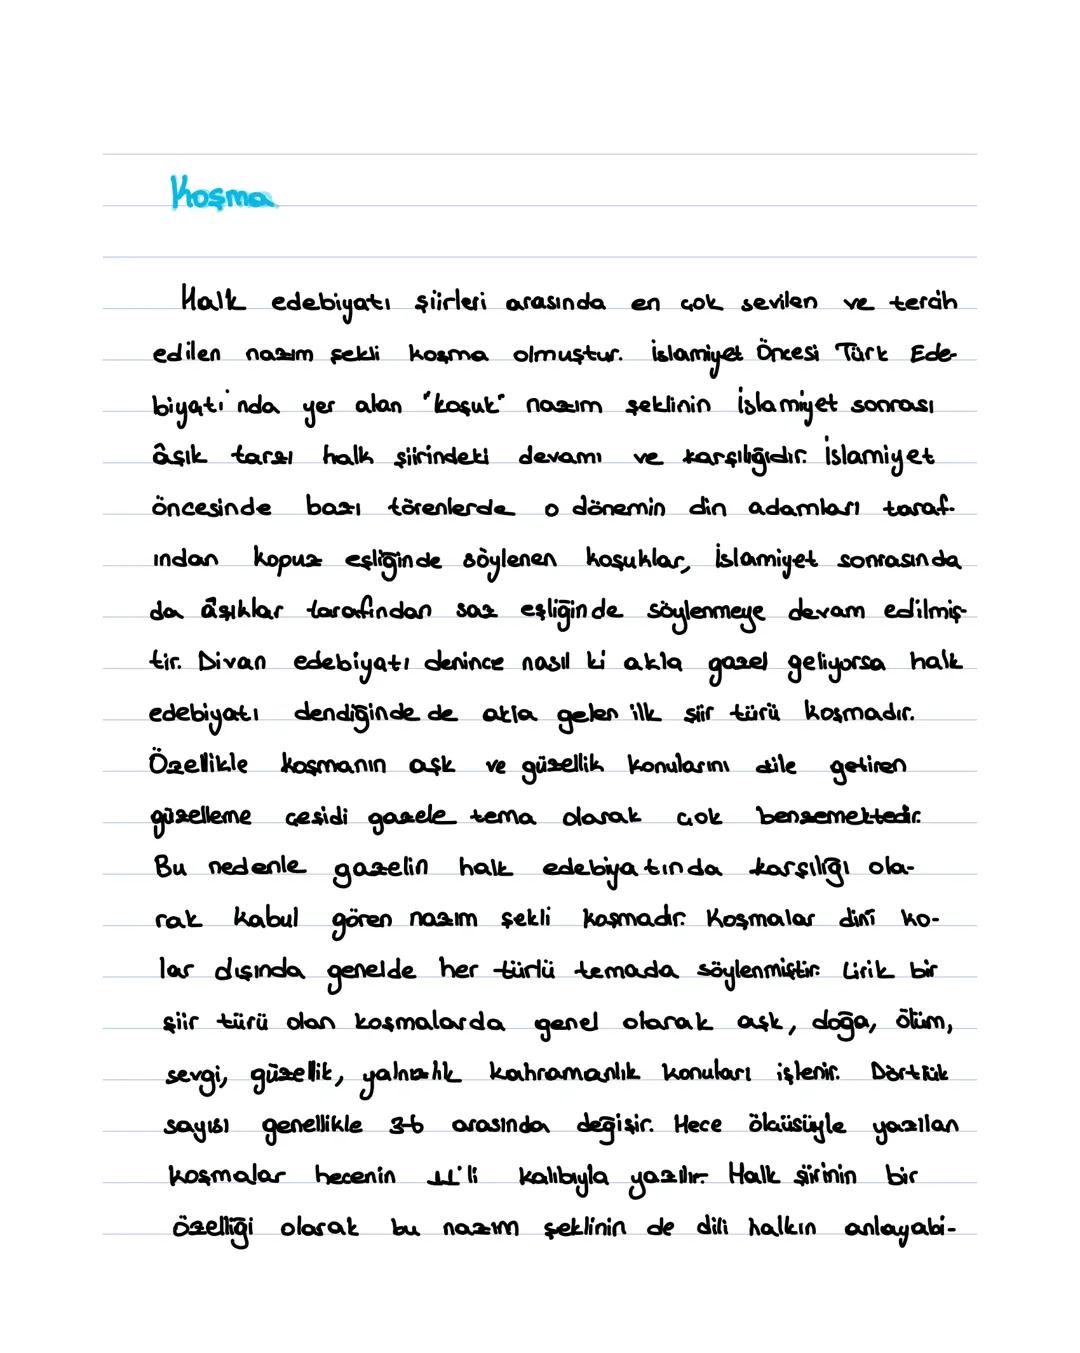 Koşma
Halk edebiyatı şiirleri arasında en çok sevilen ve tercih
edilen nazım şekli koşma olmuştur. İslamiyet Öncesi Türk Ede-
biyatı'nda yer alan "koşuk" nazım şeklinin İslamiyet sonrası
âşık tarzı halk şiirindeki devamı ve karşılığıdır. İslamiyet
öncesinde bazı törenlerde o dönemin din adamları taraf-
ından kopuz eşliğinde söylenen koşuklar, İslamiyet sonrasında
da âşıklar tarafından saz eşliğinde söylenmeye devam edilmiş-
tir. Divan edebiyatı denince nasıl ki akla gazel geliyorsa halk
edebiyatı dendiğinde de akla gelen ilk şiir türü koşmadır.
Özellikle koşmanın aşk ve güzellik konularını dile getiren
güzelleme çeşidi gazele tema olarak çok benzemektedir.
Bu nedenle gazelin halk edebiyatında karşılığı ola-
rak kabul gören nazım şekli koşmadır. Koşmalar dinî ko-
lar dışında genelde her türlü temada söylenmiştir. Lirik bir
şiir türü olan koşmalarda genel olarak aşk, doğa, ölüm,
sevgi, güzellik, yalnızlık kahramanlık konuları işlenir. Dörtlük
sayısı genellikle 3-6 arasında değişir. Hece ölçüsüyle yazılan
koşmalar hecenin 11'li kalıbıyla yazılır. Halk şiirinin bir
özelliği olarak bu nazım şeklinin de dili halkın anlayabi-